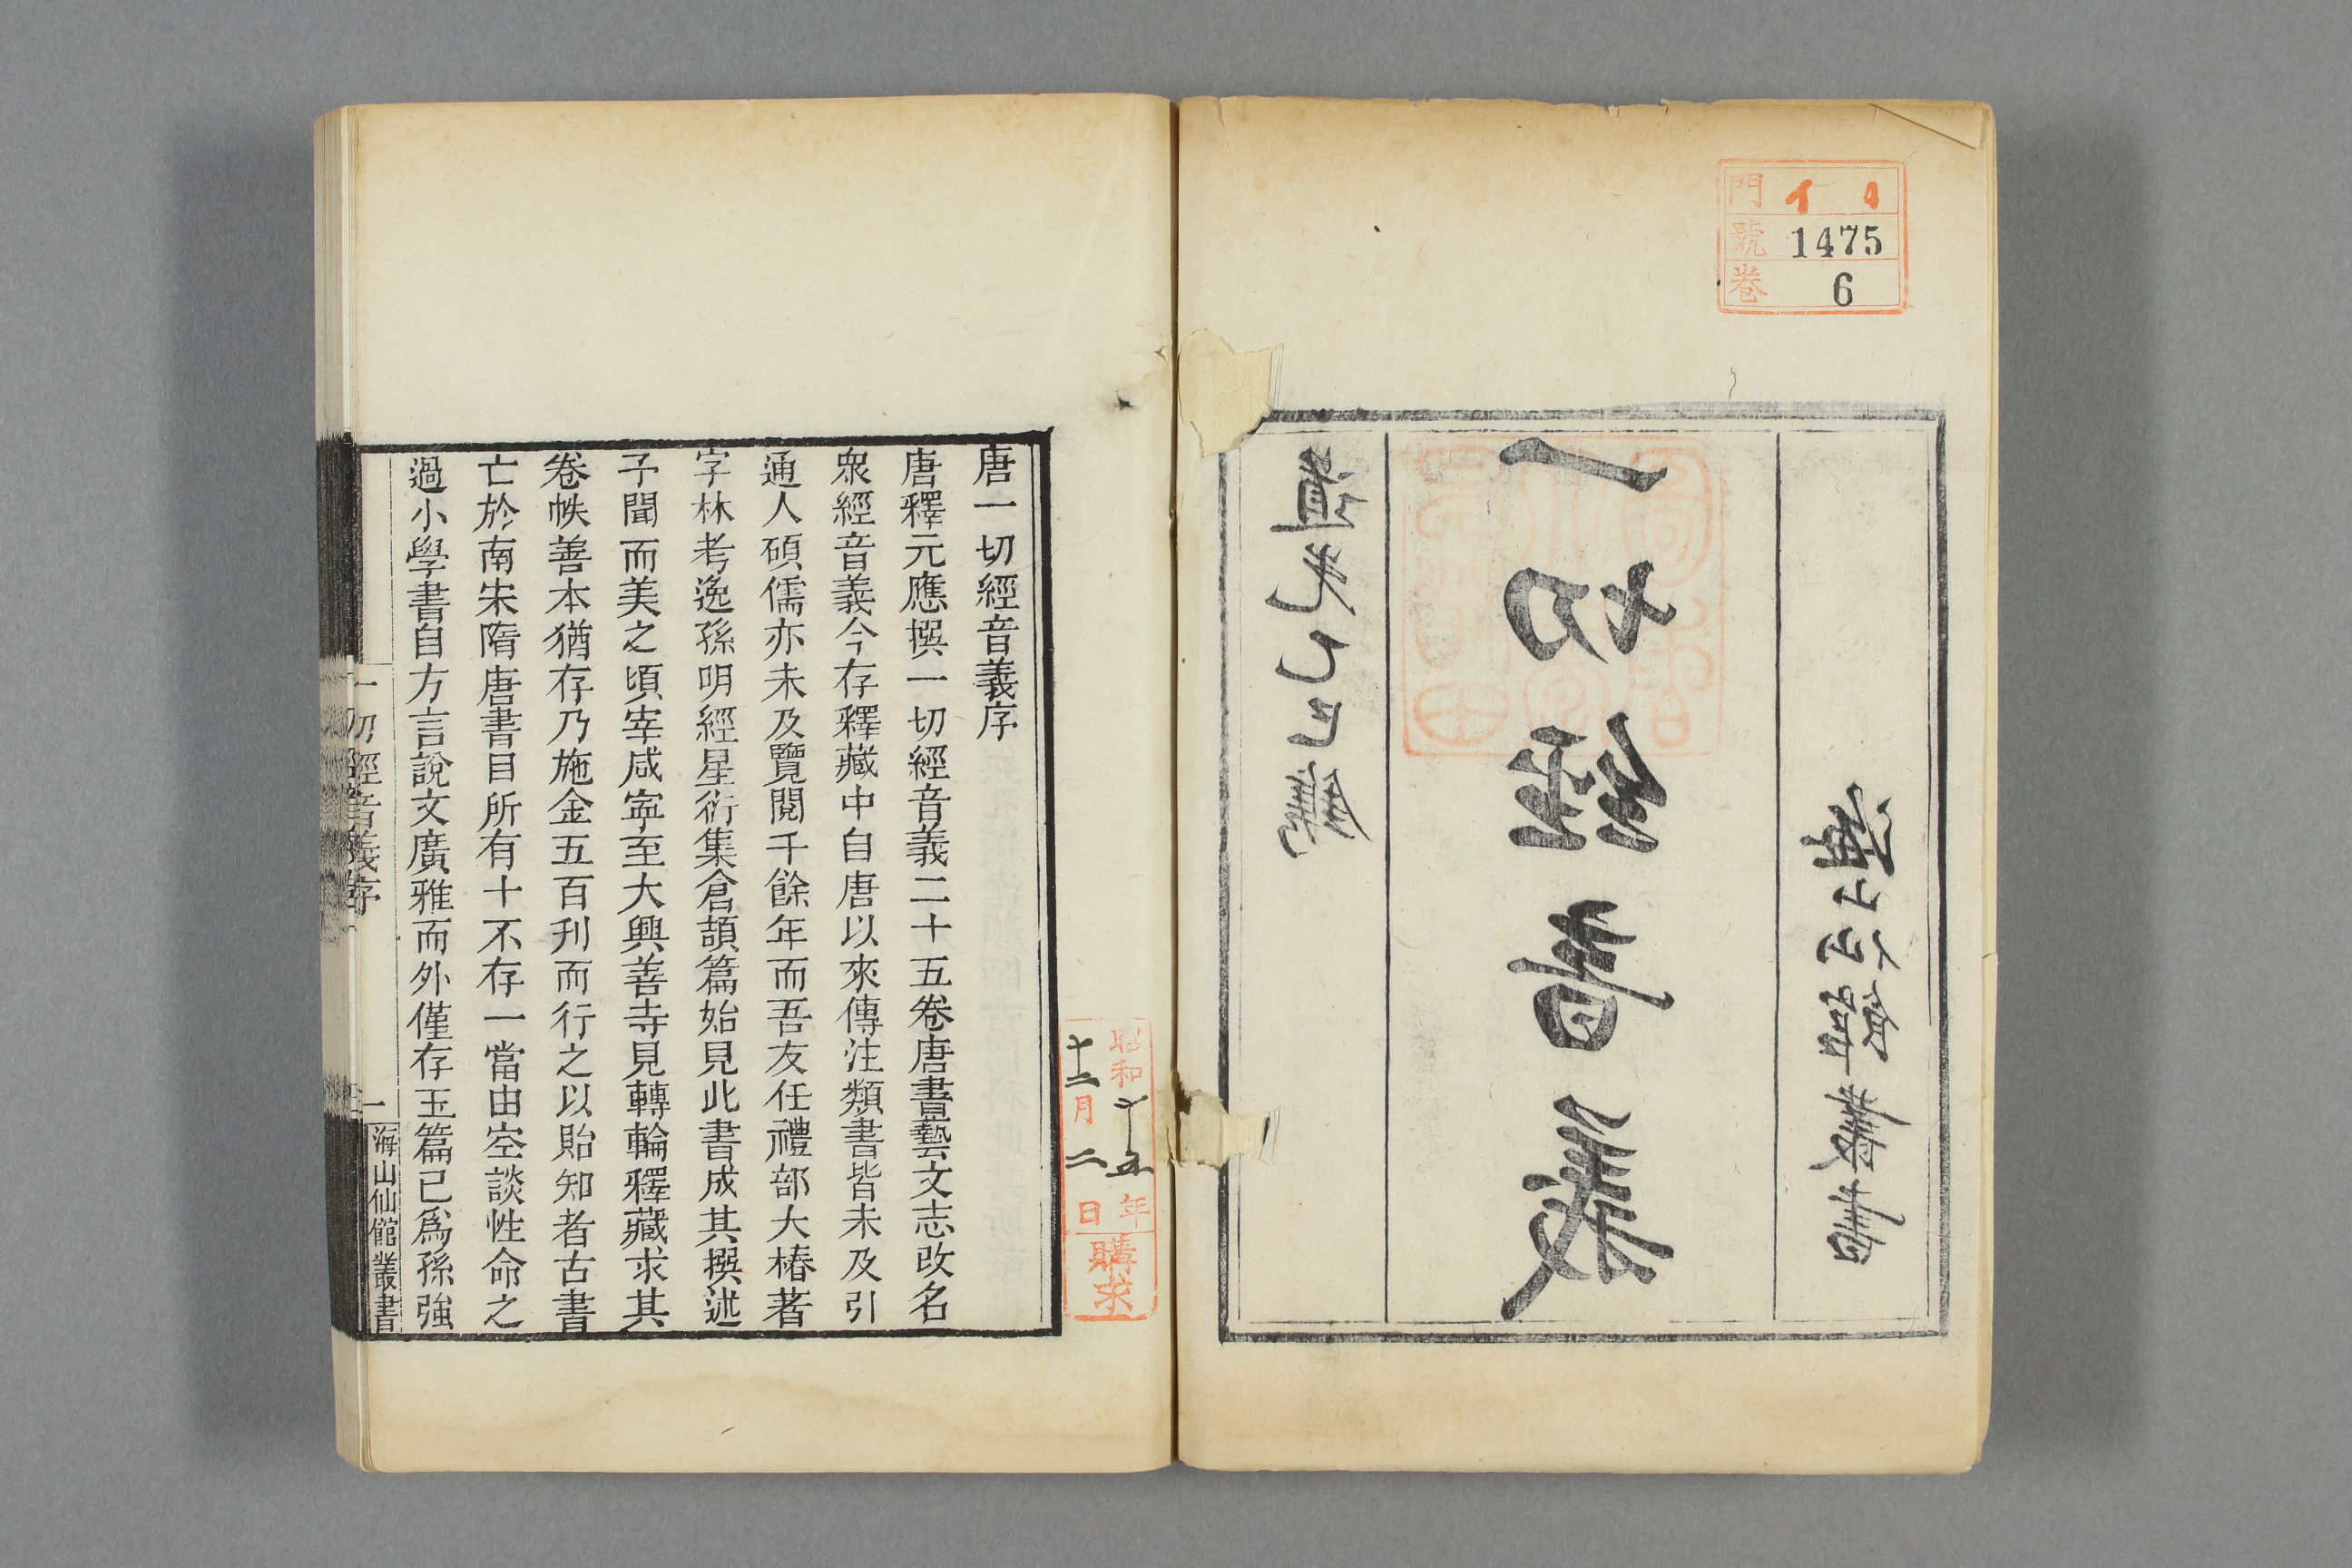 門 イ 1
號 1475
卷 6
海山仙館叢書
一切經音義
道光乙巳鐫
昭和十五年
十二月二日
購求
唐一切經音義序
唐釋元應撰一切經音義二十五卷唐書藝文志改名
衆經音義今存釋藏中自唐以來傳注類書皆未及引
通人碩儒亦未及覽閱千餘年而吾友任禮部大椿著
字林考逸孫明經星衍集倉頡篇始見此書成其撰述
予聞而美之頃宰咸寧至大興善寺見轉輪釋藏求其
卷帙善本猶存乃施金五百刊而行之以貽知者古書
亡於南宋隋唐書目所有十不存一當由空談性命之
過小學書自方言說文廣雅而外僅存玉篇已爲孫強
一切經音義序
一
海山仙館叢書